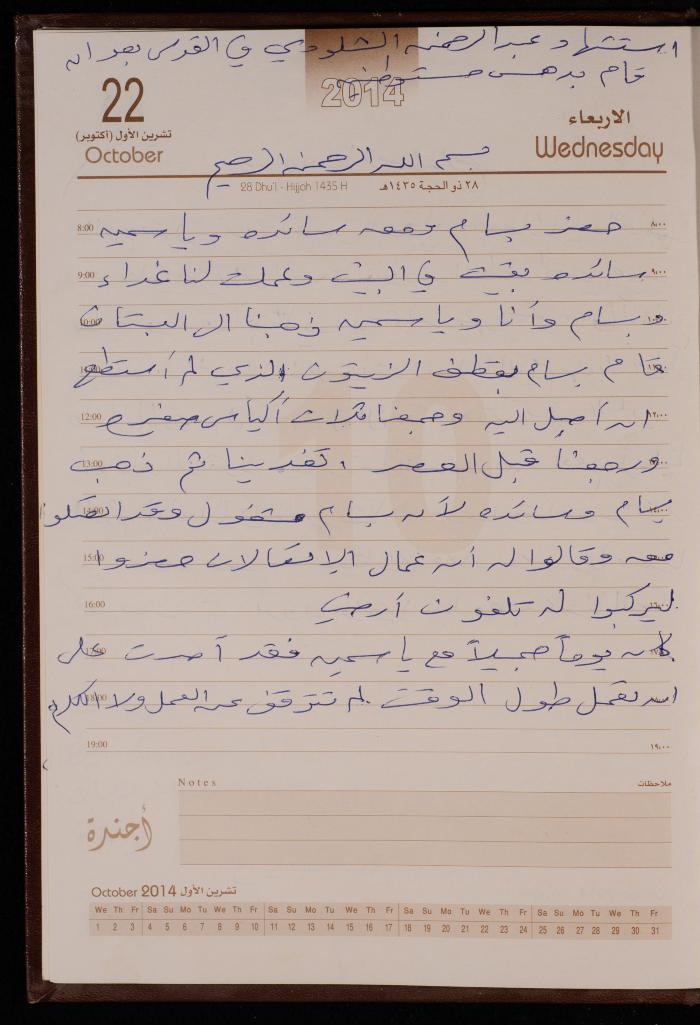 استشهاد عبد الرحمن الشلودي في القدس بعد ان
قام بدهس مستوطنين
2014
22
تشرين الأول (أكتوبر)
October
الاربعاء
Wednesday
بسم الله الرحمن الرحيم
28 Dhu'l - Hijjah 1435 H
٢٨ ذو الحجة ١٤٣٥هـ
8:00 حضر بسام ومعه سائده وياسمين ٨،٠٠
9:00 سائده بقيت في البيت وعملت لنا غداء ٩،٠٠
10:00 وبسام وأنا وياسمين ذهبنا الى البستان ١٠،٠٠
قام بسام بقطف الزيتون الذي لم أستطع
12:00 ان أصل اليه وجمعنا ثلاث أكياس صغيره ١٢،٠٠
13:00 ورجعنا قبل العصر ، تغدينا ثم ذهب
14:00 بسام وسائده لأن بسام مشغول وقد اتصلوا
15:00 معه وقالوا له أن عمال الاتصالات حضروا
16:00 ليركبوا له تلفون أرضي ١٦،٠٠
كان يوماً جميلاً مع ياسمين فقد أصرت على
18:00 ان تعمل طول الوقت لم تتوقف عن العمل ولا الكلام
19:00 ١٩،٠٠
Notes ملاحظات
أجندة
October 2014 تشرين الأول
We Th Fr Sa Su Mo Tu We Th Fr Sa Su Mo Tu We Th Fr Sa Su Mo Tu We Th Fr Sa Su Mo Tu We Th Fr
1 2 3 4 5 6 7 8 9 10 11 12 13 14 15 16 17 18 19 20 21 22 23 24 25 26 27 28 29 30 31